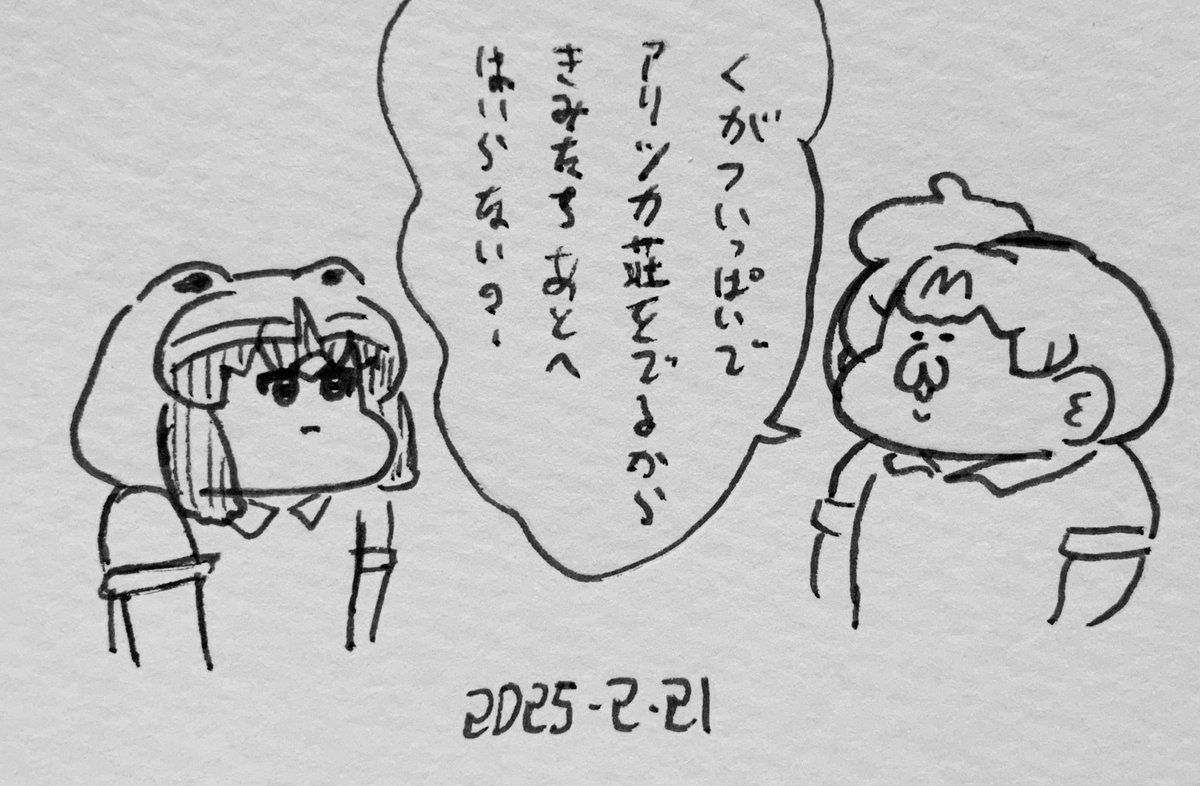 くがついっぱいで
アリツカ荘をでるから
きみたちあとへ
はいらないの、
2025-2-21